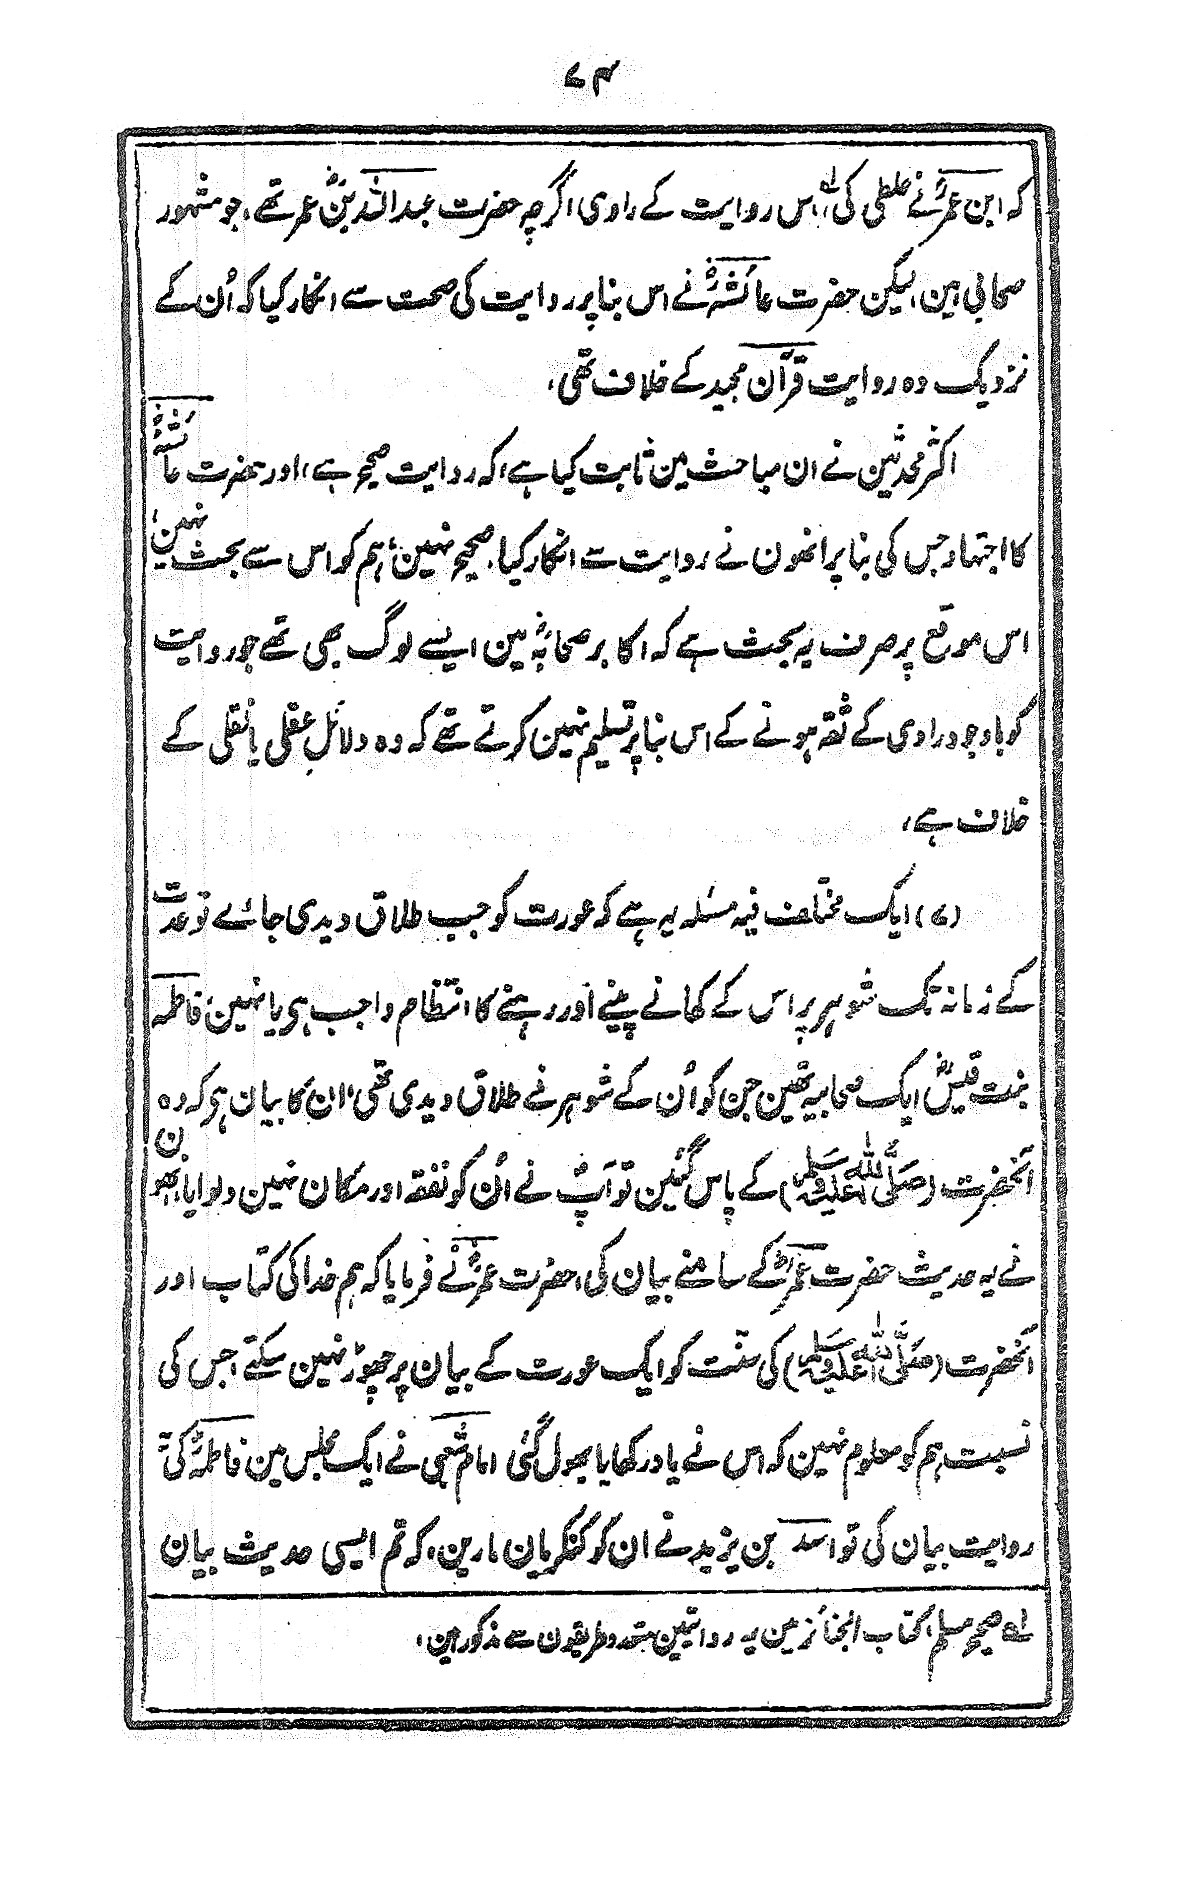 ۷۴
کہ ابن عمرؓ نے غلطی کی لہ، اس روایت کے راوی اگرچہ حضرت عبداللہ بن عمر تھے، جو مشہور
صحابی ہین، لیکن حضرت عائشہؓ نے اس بنا پر روایت کی صحت سے انکار کیا کہ اُن کے
نزدیک وہ روایت قرآن مجید کے خلاف تھی،
اکثر محدثین نے ان مباحث مین ثابت کیا ہے، کہ روایت صحیح ہے، اور حضرت عائشہؓ
کا اجتہاد جس کی بنا پر انھون نے روایت سے انکار کیا، صحیح نہین، ہم کو اس سے بحث نہین،
اس موقع پر صرف یہ بحث ہے کہ اکابر صحابہؓ مین ایسے لوگ بھی تھے جو روایت
کو باوجود راوی کے ثقہ ہونے کے اس بنا پر تسلیم نہین کرتے تھے کہ وہ دلائلِ عقلی یا نقلی کے
خلاف ہے،
(۷) ایک مختلف فیہ مسئلہ یہ ہے کہ عورت کو جب طلاق دیدی جائے تو عدت
کے زمانہ تک شوہر پر اس کے کھانے پینے اور رہنے کا انتظام واجب ہی یا نہین، فاطمہ
بنت قیسؓ ایک صحابیہ تھین جن کو اُن کے شوہر نے طلاق دیدی تھی، ان کا بیان ہی کہ وہ
آنحضرت (صلی اللہ علیہ وسلم) کے پاس گئین تو آپ نے اُن کو نفقہ اور مکان نہین دلوایا، انھون
نے یہ حدیث حضرت عمرؓ کے سامنے بیان کی، حضرت عمرؓ نے فرمایا کہ ہم خدا کی کتاب اور
آنحضرت (صلی اللہ علیہ وسلم) کی سنّت کو ایک عورت کے بیان پر چھوڑ نہین سکتے، جس کی
نسبت ہم کو معلوم نہین کہ اس نے یاد رکھا یا بھول گئی امام شعبی نے ایک مجلس مین فاطمہؓ کی یہ
روایت بیان کی تو اسد بن یزید نے ان کو کنکریان مارین، کہ تم ایسی حدیث بیان
لہ صحیح مسلم، کتاب الجنائز مین یہ روایتین متعدد طریقون سے مذکور ہین،